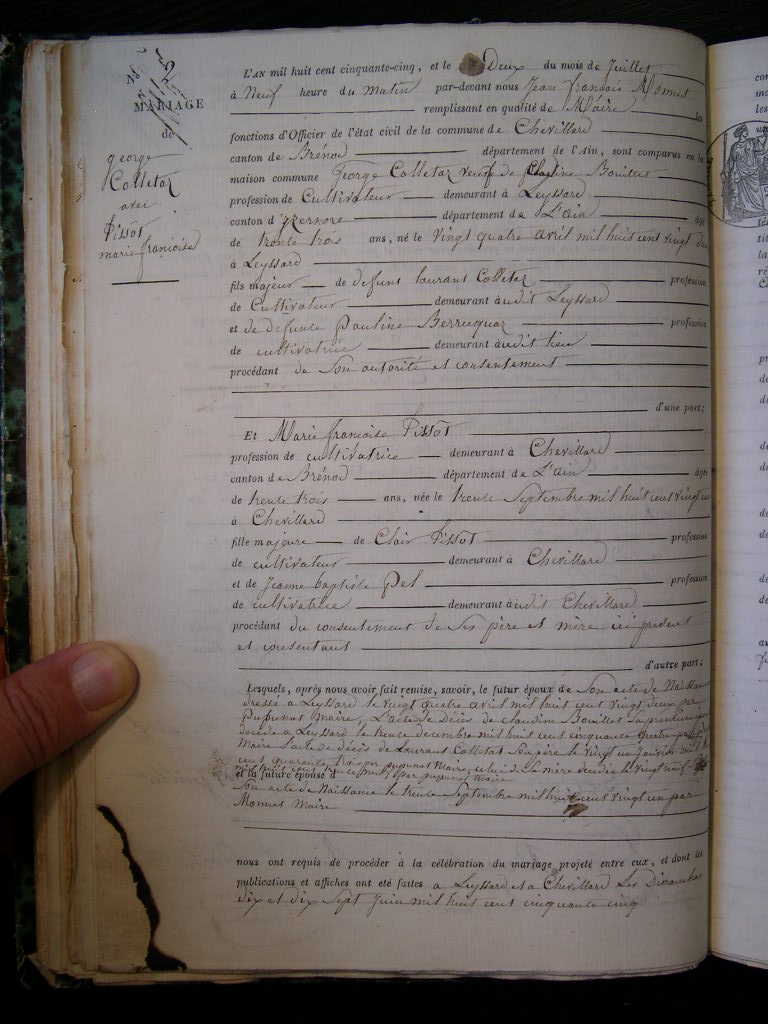 N° 2
MARIAGE
de
george
Colletaz
avec
Pissot
marie françoise
L'AN mil huit cent cinquante-cinq, et le Deux du mois de Juillet
à Neuf heure du Matin par-devant nous Jean françois Monnet
remplissant en qualité de Maire les
fonctions d'Officier de l'état civil de la commune de Chevillard
canton de Brénod département de l'Ain, sont comparus en la
maison commune George Colletaz veuf de Claudine Bouillet
profession de Cultivateur demeurant à Leyssard
canton d'izernore département de L'ain âgé
de trente trois ans, né le vingt quatre avril mil huit cent vingt deux
à Leyssard
fils majeur de defunt laurant Colletaz profession
de Cultivateur demeurant audit Leyssard
et de défunte Pauline Berruquaz profession
de cultivatrice demeurant audit lieu
procédant de Son autorité et consentement
d'une part;
Et Marie françoise Pissot
profession de cultivatrice demeurant à Chevillard
canton de Brénod département de L'ain âgée
de trente trois ans, née le trente Septembre mil huit cent vingt un
à Chevillard
fille majeure de Clair Pissot profession
de cultivateur demeurant à Chevillard
et de Jeanne baptiste Pel profession
de cultivatrice demeurant audit Chevillard
procédant du consentement de Ses père et mère ici présent
et consentant
d'autre part;
Lesquels, après nous avoir fait remise, savoir, le futur époux de Son acte de Naissance
dressé a Leyssard le vingt quatre avril mil huit cent vingt deux par
pupunat Maire, L'acte de Décès de claudine Bouillet Sa première
décédé a Leyssard le trente decembre mil huit cent cinquante quatre par
Maire Lacte de décès de Laurant Colletaz Son père le vingt un Janvier mil
cent quarante trois par pupunat Maire, celui de Sa mère décédée le vingt neuf
mil huit cent trente par pupunat Maire
et la future épouse d
Son acte de Naissance le trente Septembre mil huit cent vingt un par
Monnet Maire
nous ont requis de procéder à la célébration du mariage projeté entre eux, et dont les
publications et affiches ont été faites a Leyssard et a Chevillard Les Dimanches
dix et dix Sept Juin mil huit cent cinquante cinq